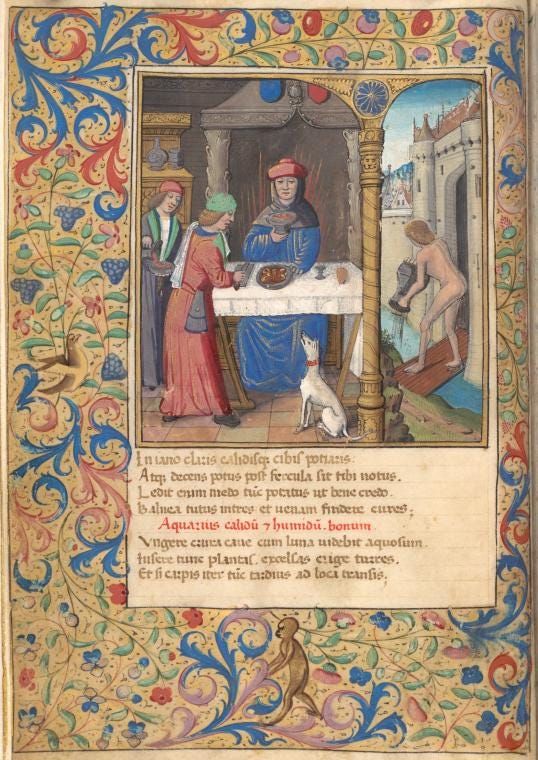 In iano claris calidisq; cibis potiaris.
Atq; decens potus post fercula sit tibi notus.
Ledit enim medo tūc potatus ut bene credo.
Balnea tutus intres et uenam findere cures;
Aquarius calidū ⁊ humidū. bonum
Vngere crura caue cum luna uidebit aquosum.
Insere tunc plantas, excelsas erige turres.
Et si carpis iter tūc tardius ad loca transis;